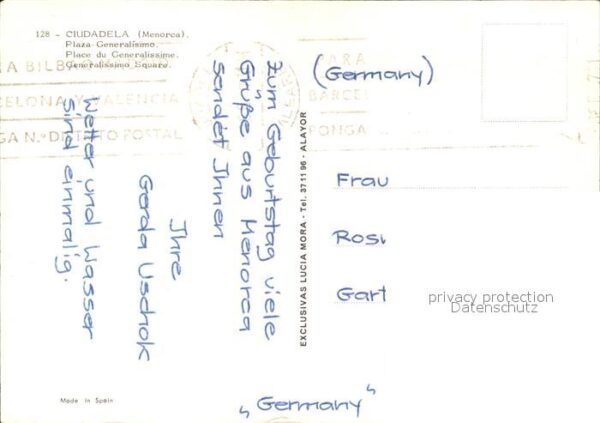 128 - CIUDADELA (Menorca).
Plaza Generalísimo.
Place du Generalissime.
Generalissimo Square.
A BILBAO
CELONA Y VALENCIA
GA N.º DTITO POSTAL
PARA
BARCEL
PONGA
Zum Geburtstag viele
Grüße aus Menorca
sendet Ihnen
Ihre
Gerda Uschok
Wetter und Wasser
sind einmalig.
EXCLUSIVAS LUCIA MORA - Tel. 371196 - ALAYOR
(Germany)
Frau
Rosi
Gart
privacy protection
Datenschutz
"Germany"
Made in Spain